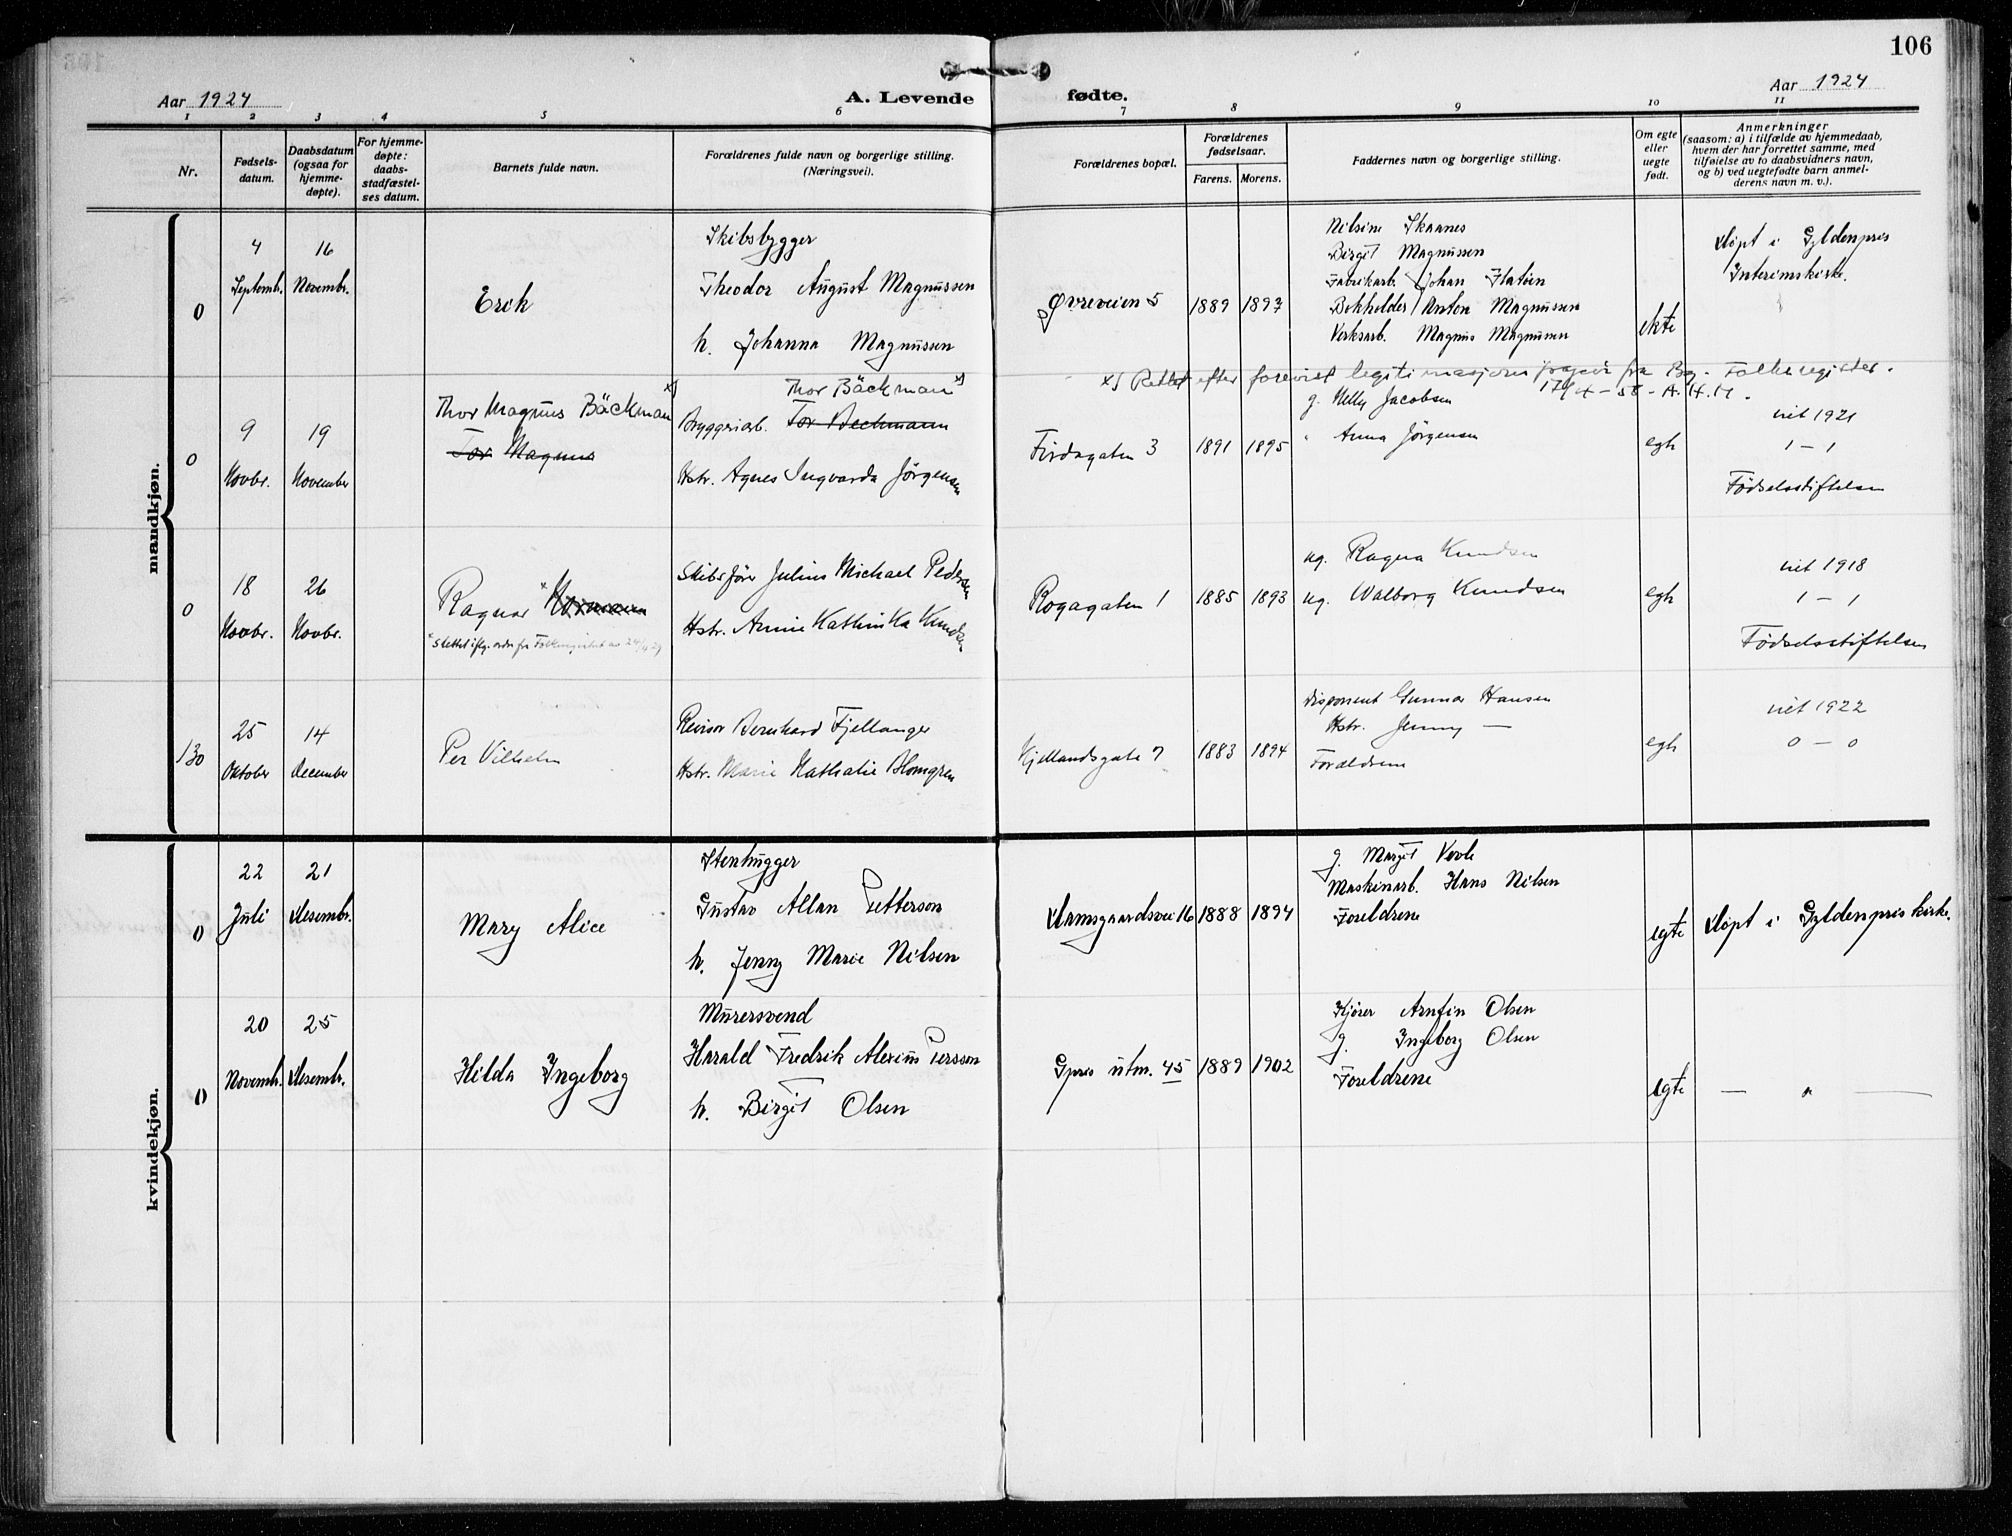 106
Aar 1924
A. Levende fødte.
Aar 1924
1 2 3 4 5 6 7 8 9 10 11
Nr.
Fødsels-
datum.
Daabsdatum
(ogsaa for
hjemme-
døpte).
For hjemme-
døpte:
daabs-
stadfæstel-
ses datum.
Barnets fulde navn.
Forældrenes fulde navn og borgerlige stilling.
(Næringsvei).
Forældrenes bopæl.
Forældrenes
fødselsaar.
Farens. Morens.
Faddernes navn og borgerlige stilling.
Om egte
eller
uegte
født.
Anmerkninger
(saasom: a) i tilfælde av hjemmedaab,
hvem der har forrettet samme, med
tilføielse av to daabsvidners navn,
og b) ved uegtefødte barn anmel-
derens navn m. v.).
mandkjøn.
0
4
Septembr.
16
Novembr.
Erik
Skibsbygger
Theodor August Magnussen
h. Johanna Magnussen
Øvreveien 5
1889
1897
Nilsine Skaanes
Birgit Magnussen
Fabrikarb. Johan Flatøen
Bokholder Anton Magnussen
Verksarb. Magnus Magnussen
ekte
Døpt i Gyldenpris
Interimskirke.
x) Rettet efter forevist legitimasjon fra Bg. Folkeregister.
17/4-58 - A.H.M.
0
9
Novbr.
19
November
Thor Magnus Bäckman x)
Tor Magnus
Thor Bäckman x)
Bryggeriarb. Tor Beckmann
Hstr. Agnes Ingvarda Jørgensen
Firdagaten 3
1891
1895
g. Nelly Jacobsen
" Anna Jørgensen
egte
viet 1921
1 – 1
Fødselsstiftelsen
0
18
Novbr.
26
Novbr.
Ragnar
Skibsfører Julius Michael Pedersen
Hstr. Annie Kathinka Knudsen
Rogagaten 1
1885
1893
ug. Ragna Knudsen
ug. Walborg Knudsen
egte
viet 1918
1 – 1
Fødselsstiftelsen
130
25
Oktober
14
December
Per Vilhelm
Revisor Bernhard Fjellanger
Hstr. Marie Nathalie Blomgren
Kjellandsgate 7
1883
1894
Disponent Gunnar Hansen
Hstr. Jenny —
Forældrene
egte
viet 1922
0 – 0
kvindekjøn.
0
22
Juli
21
Desembr.
Mary Alice
Stenhugger
Gustav Allan Petterson
h. Jenny Marie Nilsen
Damsgaardsvei 16
1888
1894
g. Margit Vevle
Maskinarb. Hans Nilsen
Foreldrene
egte
Døpt i Gyldenpris kirke.
0
20
Novembr.
25
Desembr.
Hilda Ingeborg
Mürersvend
Harald Fredrik Alexius Persson
h. Birgit Olsen
Gpris utm. 45
1889
1902
Kjører Arnfin Olsen
g. Ingeborg Olsen
Foreldrene
egte
— " —